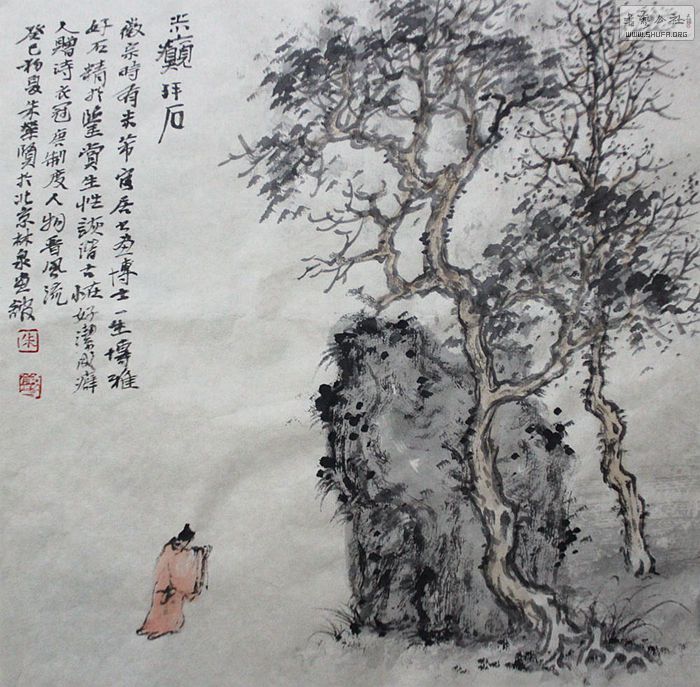 米癲拜石
徽宗時有米芾官居书畫博士一生博雅
好石精於鑒賞生性詼諧古怪好潔成癖
人贈詩衣冠唐制度人物晋風流
癸巳初夏朱業賢於北京林泉畫館
朱
書法公社
WWW.SHUFA.ORG